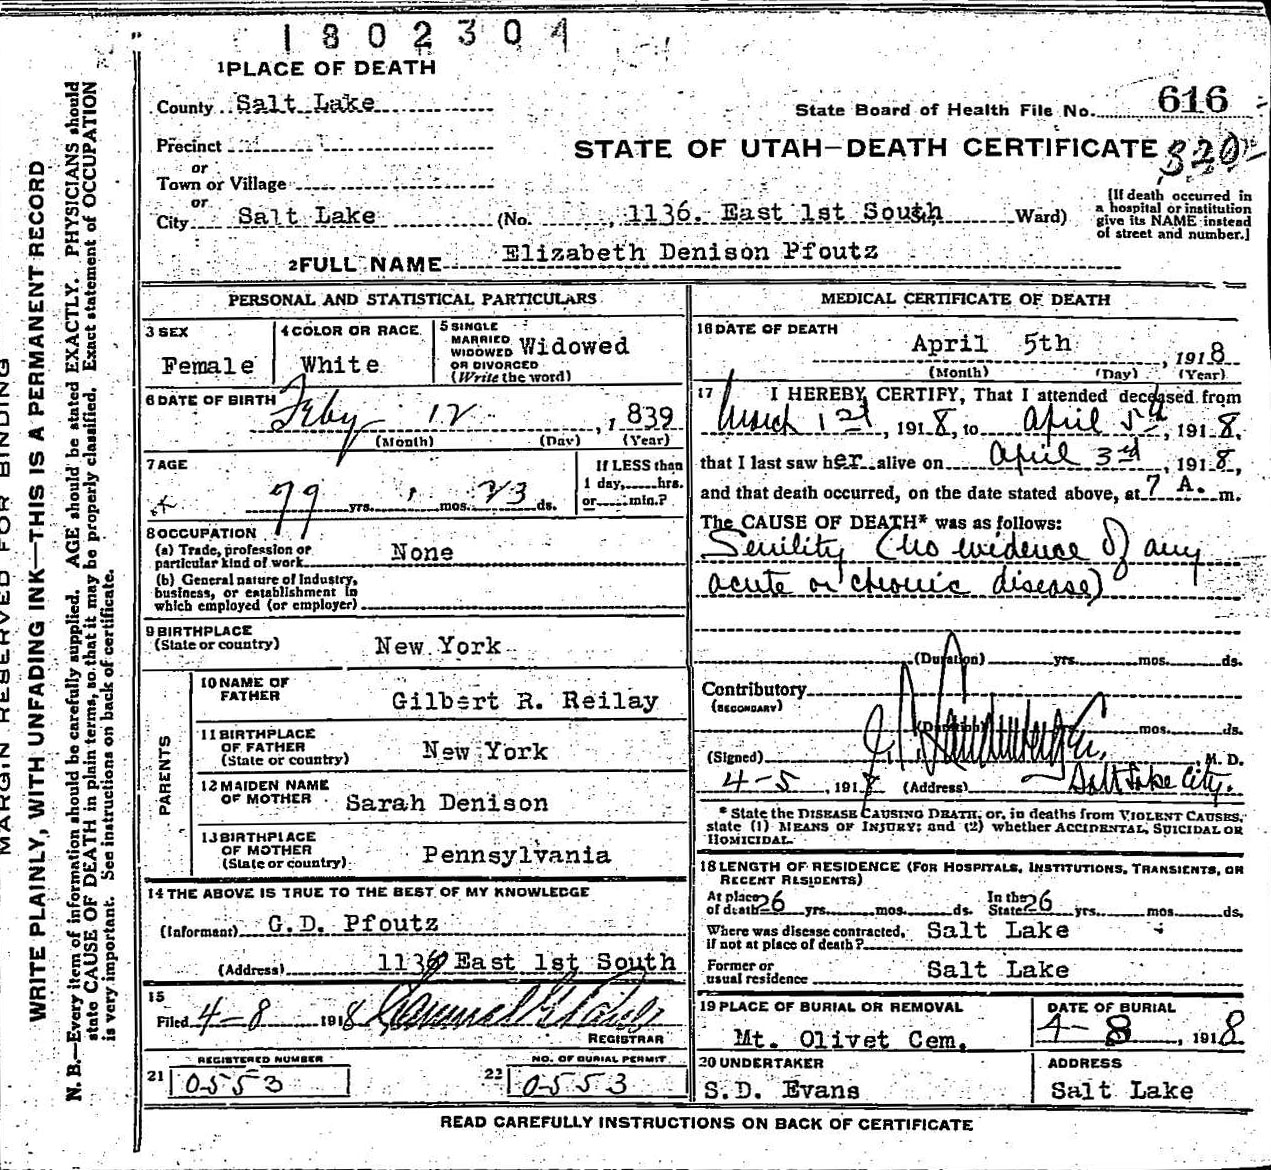 1802304
1 PLACE OF DEATH
County Salt Lake
State Board of Health File No. 616
Precinct
STATE OF UTAH—DEATH CERTIFICATE 320
or
Town or Village
or
City Salt Lake (No. , 1136. East 1st South, Ward)
[If death occurred in
a hospital or institution
give its NAME instead
of street and number.]
2 FULL NAME Elizabeth Denison Pfoutz
PERSONAL AND STATISTICAL PARTICULARS
3 SEX
Female
4 COLOR OR RACE
White
5 SINGLE
MARRIED
WIDOWED
OR DIVORCED
(Write the word)
Widowed
6 DATE OF BIRTH
Feby 12, 1839
(Month) (Day) (Year)
7 AGE
79 yrs. 1 mos. 23 ds.
If LESS than
1 day, hrs.
or min.?
8 OCCUPATION
(a) Trade, profession or
particular kind of work None
(b) General nature of Industry,
business, or establishment in
which employed (or employer)
9 BIRTHPLACE
(State or country) New York
PARENTS
10 NAME OF
FATHER Gilbert R. Reilay
11 BIRTHPLACE
OF FATHER
(State or country) New York
12 MAIDEN NAME
OF MOTHER Sarah Denison
13 BIRTHPLACE
OF MOTHER
(State or country) Pennsylvania
14 THE ABOVE IS TRUE TO THE BEST OF MY KNOWLEDGE
(Informant) G.D. Pfoutz
(Address) 1136 East 1st South
15
Filed 4-8 1918
REGISTRAR
REGISTERED NUMBER
21 0553
NO. OF BURIAL PERMIT
22 0553
MEDICAL CERTIFICATE OF DEATH
16 DATE OF DEATH
April 5th, 1918
(Month) (Day) (Year)
17 I HEREBY CERTIFY, That I attended deceased from
March 1st, 1918, to April 5th, 1918,
that I last saw her alive on April 3rd, 1918,
and that death occurred, on the date stated above, at 7 A. m.
The CAUSE OF DEATH* was as follows:
Senility (no evidence of any
acute or chronic disease)
(Duration) yrs. mos. ds.
Contributory
(SECONDARY)
(Duration) mos. ds.
(Signed) M. D.
4-5, 1918 (Address) Salt Lake City.
* State the DISEASE CAUSING DEATH, or, in deaths from VIOLENT CAUSES,
state (1) MEANS OF INJURY; and (2) whether ACCIDENTAL, SUICIDAL OR
HOMICIDAL.
18 LENGTH OF RESIDENCE (FOR HOSPITALS, INSTITUTIONS, TRANSIENTS, OR
RECENT RESIDENTS)
At place
of death 26 yrs. mos. ds.
In the
State 26 yrs. mos. ds.
Where was disease contracted,
if not at place of death? Salt Lake
Former or
usual residence Salt Lake
19 PLACE OF BURIAL OR REMOVAL
Mt. Olivet Cem.
DATE OF BURIAL
4-8, 1918
20 UNDERTAKER
S.D. Evans
ADDRESS
Salt Lake
READ CAREFULLY INSTRUCTIONS ON BACK OF CERTIFICATE
MARGIN RESERVED FOR BINDING
WRITE PLAINLY, WITH UNFADING INK—THIS IS A PERMANENT RECORD
N. B.—Every item of information should be carefully supplied. AGE should be stated EXACTLY. PHYSICIANS should
state CAUSE OF DEATH in plain terms, so that it may be properly classified. Exact statement of OCCUPATION
is very important. See instructions on back of certificate.